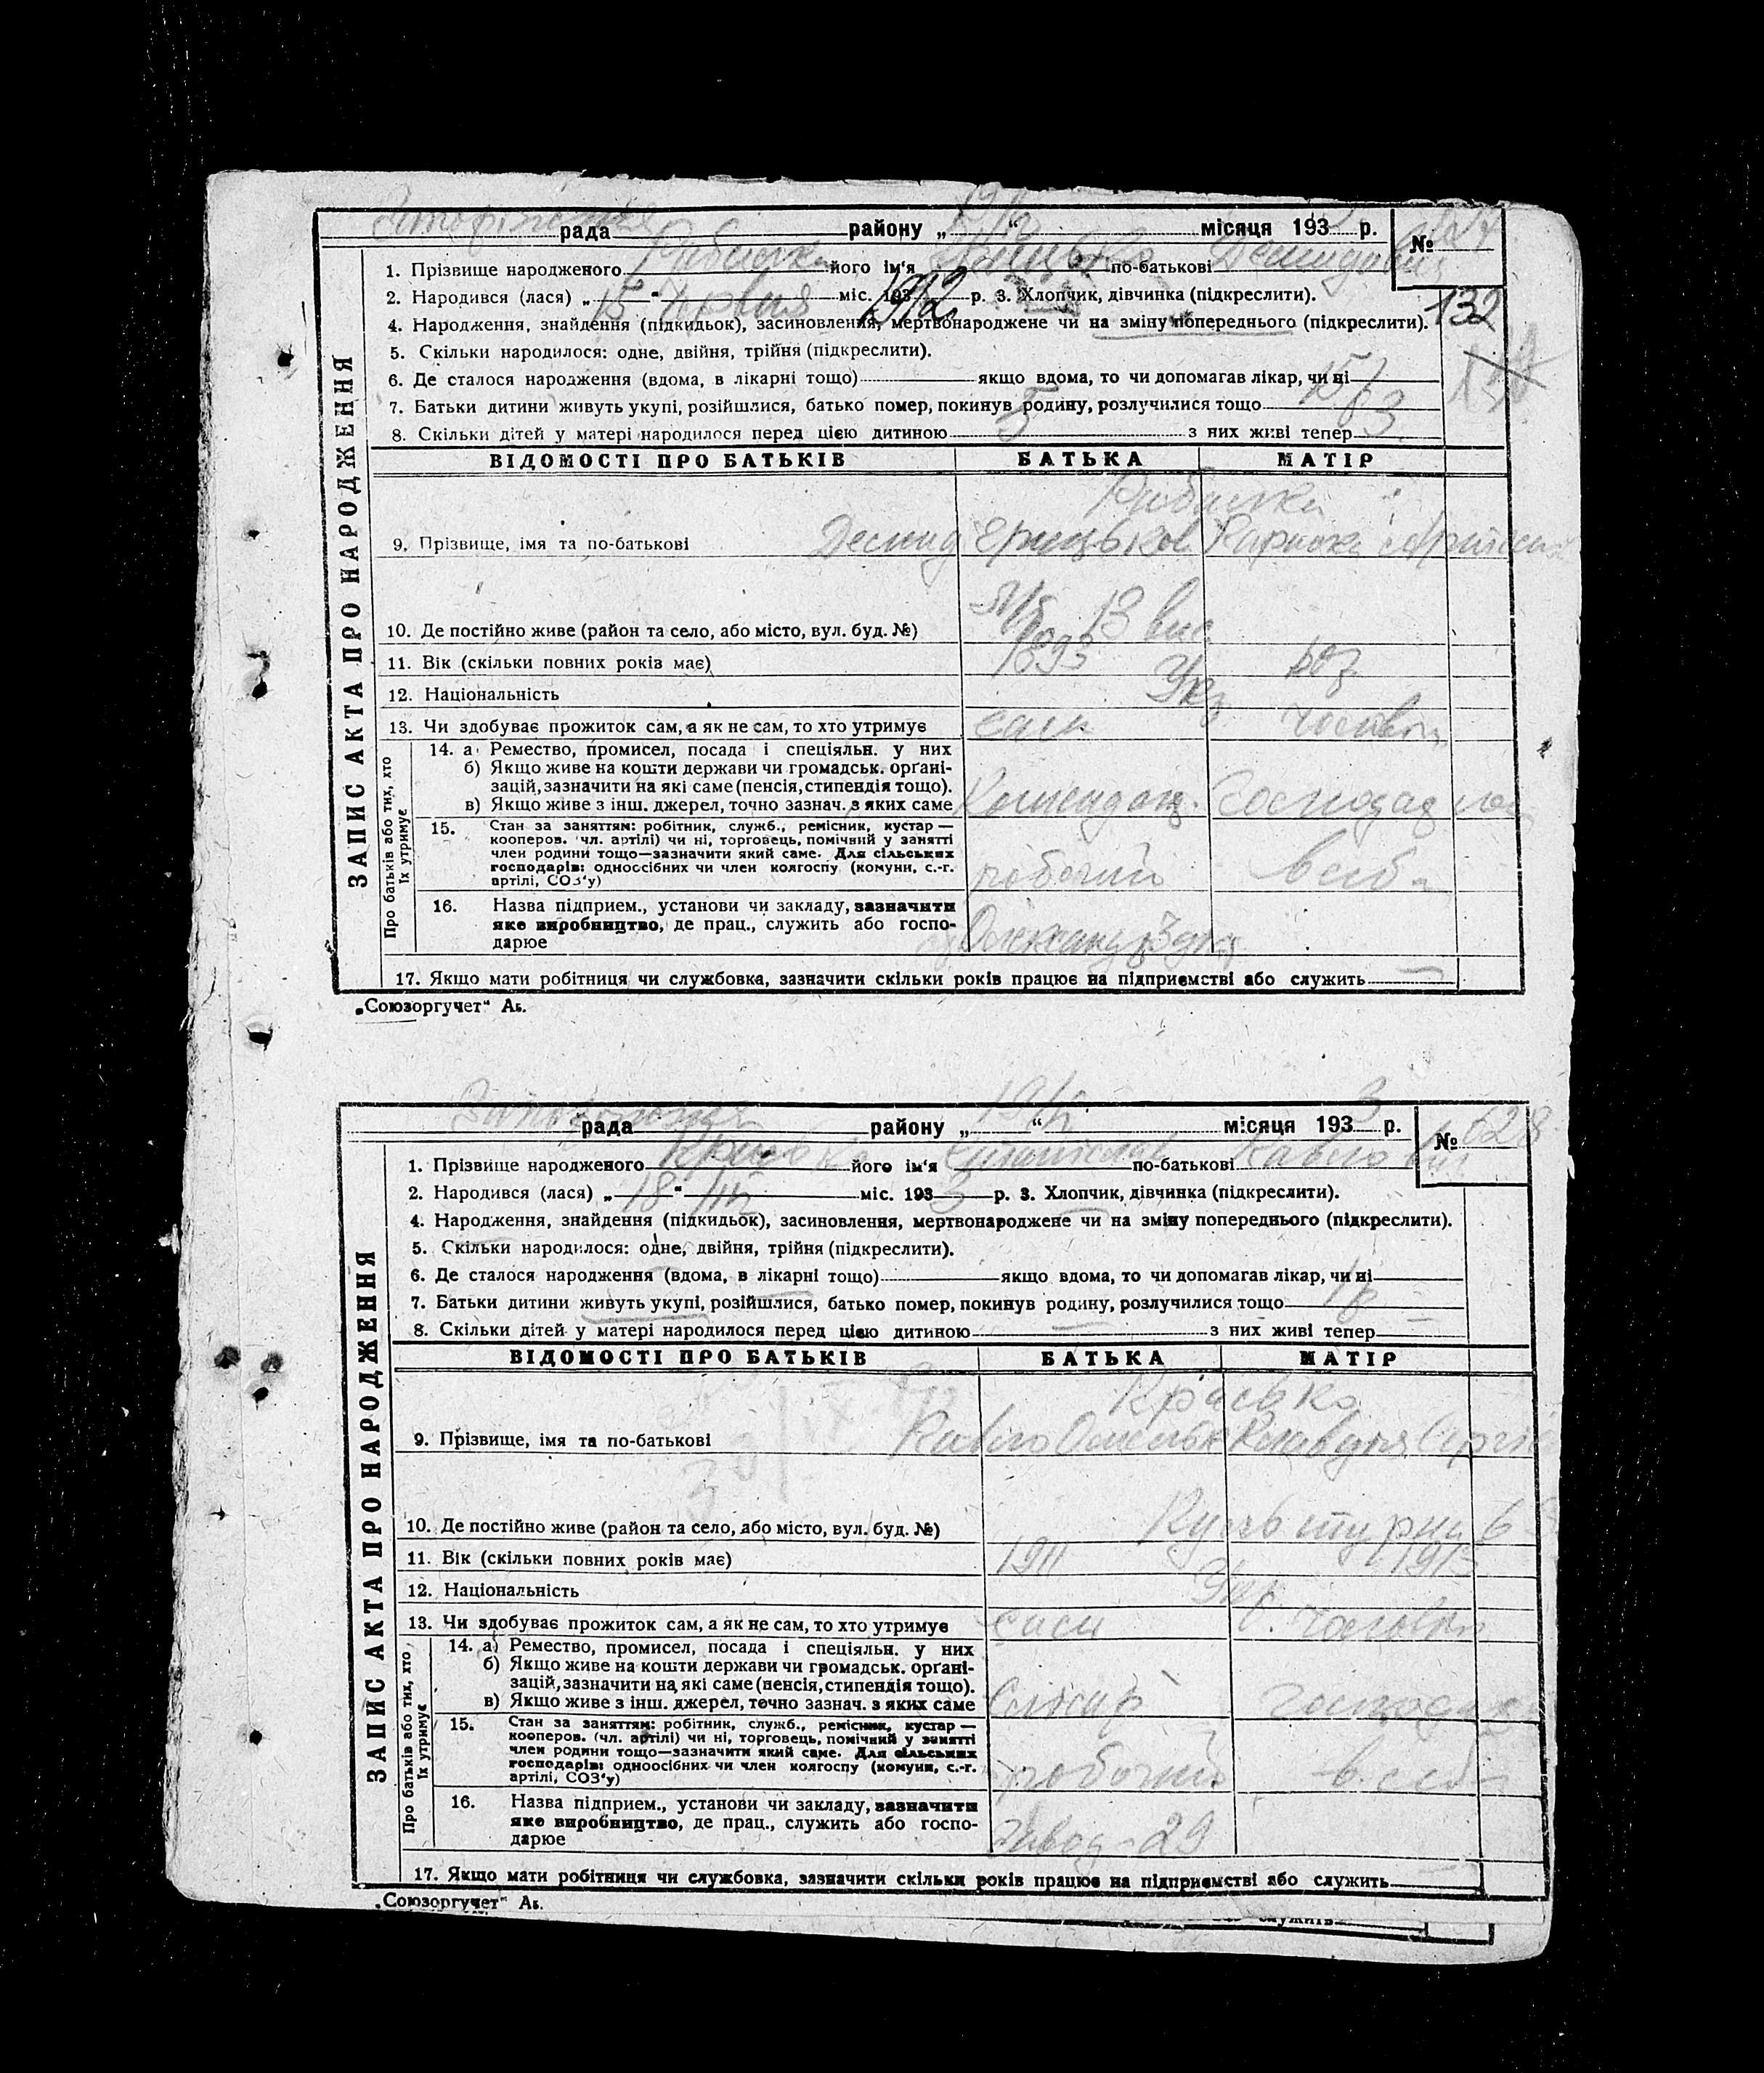 рада району „ “ місяця 193 р. №
1. Прізвище народженого його ім'я по-батькові
2. Народився (лася) „15" червня міс. 1912 р. 3. Хлопчик, дівчинка (підкреслити).
132
4. Народження, знайдення (підкидьок), засиновлення, мертвонароджене чи на зміну попереднього (підкреслити).
5. Скільки народилося: одне, двійня, трійня (підкреслити).
6. Де сталося народження (вдома, в лікарні тощо) якщо вдома, то чи допомагав лікар, чи ні
7. Батьки дитини живуть укупі, розійшлися, батько помер, покинув родину, розлучилися тощо
8. Скільки дітей у матері народилося перед цією дитиною 5 з них живі тепер 3
ЗАПИС АКТА ПРО НАРОДЖЕННЯ
ВІДОМОСТІ ПРО БАТЬКІВ БАТЬКА МАТІР
9. Прізвище, імя та по-батькові Демид
10. Де постійно живе (район та село, або місто, вул. буд. №) 13
11. Вік (скільки повних років має) 1893
12. Національність Укр
13. Чи здобуває прожиток сам, а як не сам, то хто утримує сам чоловік
Про батьків або тих, хто їх утримує
14. а) Ремество, промисел, посада і спеціяльн. у них
б) Якщо живе на кошти держави чи громадськ. орґані-
зацій, зазначити на які саме (пенсія, стипендія тощо).
в) Якщо живе з інш. джерел, точно зазнач. з яких саме
15. Стан за заняттям: робітник, служб., ремісник, кустар —
кооперов. (чл. артілі) чи ні, торговець, помічний у занятті
член родини тощо—зазначити який саме. Для сільських
господарів: одноосібних чи член колгоспу (комуни, с.-г.
артілі, СОЗ'у) робочий
16. Назва підприєм., установи чи закладу, зазначити
яке виробництво, де прац., служить або госпо-
дарює
17. Якщо мати робітниця чи службовка, зазначити скільки років працює на підприємстві або служить
„Союзоргучет" Аь.
рада району „ “ місяця 1933 р. № 628
1. Прізвище народженого його ім'я по-батькові
2. Народився (лася) „18" міс. 1933 р. 3. Хлопчик, дівчинка (підкреслити).
4. Народження, знайдення (підкидьок), засиновлення, мертвонароджене чи на зміну попереднього (підкреслити).
5. Скільки народилося: одне, двійня, трійня (підкреслити).
6. Де сталося народження (вдома, в лікарні тощо) якщо вдома, то чи допомагав лікар, чи ні
7. Батьки дитини живуть укупі, розійшлися, батько помер, покинув родину, розлучилися тощо
8. Скільки дітей у матері народилося перед цією дитиною з них живі тепер
ЗАПИС АКТА ПРО НАРОДЖЕННЯ
ВІДОМОСТІ ПРО БАТЬКІВ БАТЬКА МАТІР
9. Прізвище, імя та по-батькові
10. Де постійно живе (район та село, або місто, вул. буд. №)
11. Вік (скільки повних років має) 1911 1913
12. Національність Укр.
13. Чи здобуває прожиток сам, а як не сам, то хто утримує сам чоловік
Про батьків або тих, хто їх утримує
14. а) Ремество, промисел, посада і спеціяльн. у них
б) Якщо живе на кошти держави чи громадськ. орґані-
зацій, зазначити на які саме (пенсія, стипендія тощо).
в) Якщо живе з інш. джерел, точно зазнач. з яких саме слюсар
15. Стан за заняттям: робітник, служб., ремісник, кустар —
кооперов. (чл. артілі) чи ні, торговець, помічний у занятті
член родини тощо—зазначити який саме. Для сільських
господарів: одноосібних чи член колгоспу (комуни, с.-г.
артілі, СОЗ'у) робочий
16. Назва підприєм., установи чи закладу, зазначити
яке виробництво, де прац., служить або госпо-
дарює завод-29
17. Якщо мати робітниця чи службовка, зазначити скільки років працює на підприємстві або служить
„Союзоргучет" Аь.